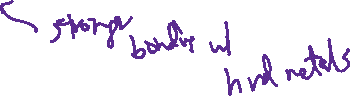 stronger
bonding w/
hvd metals